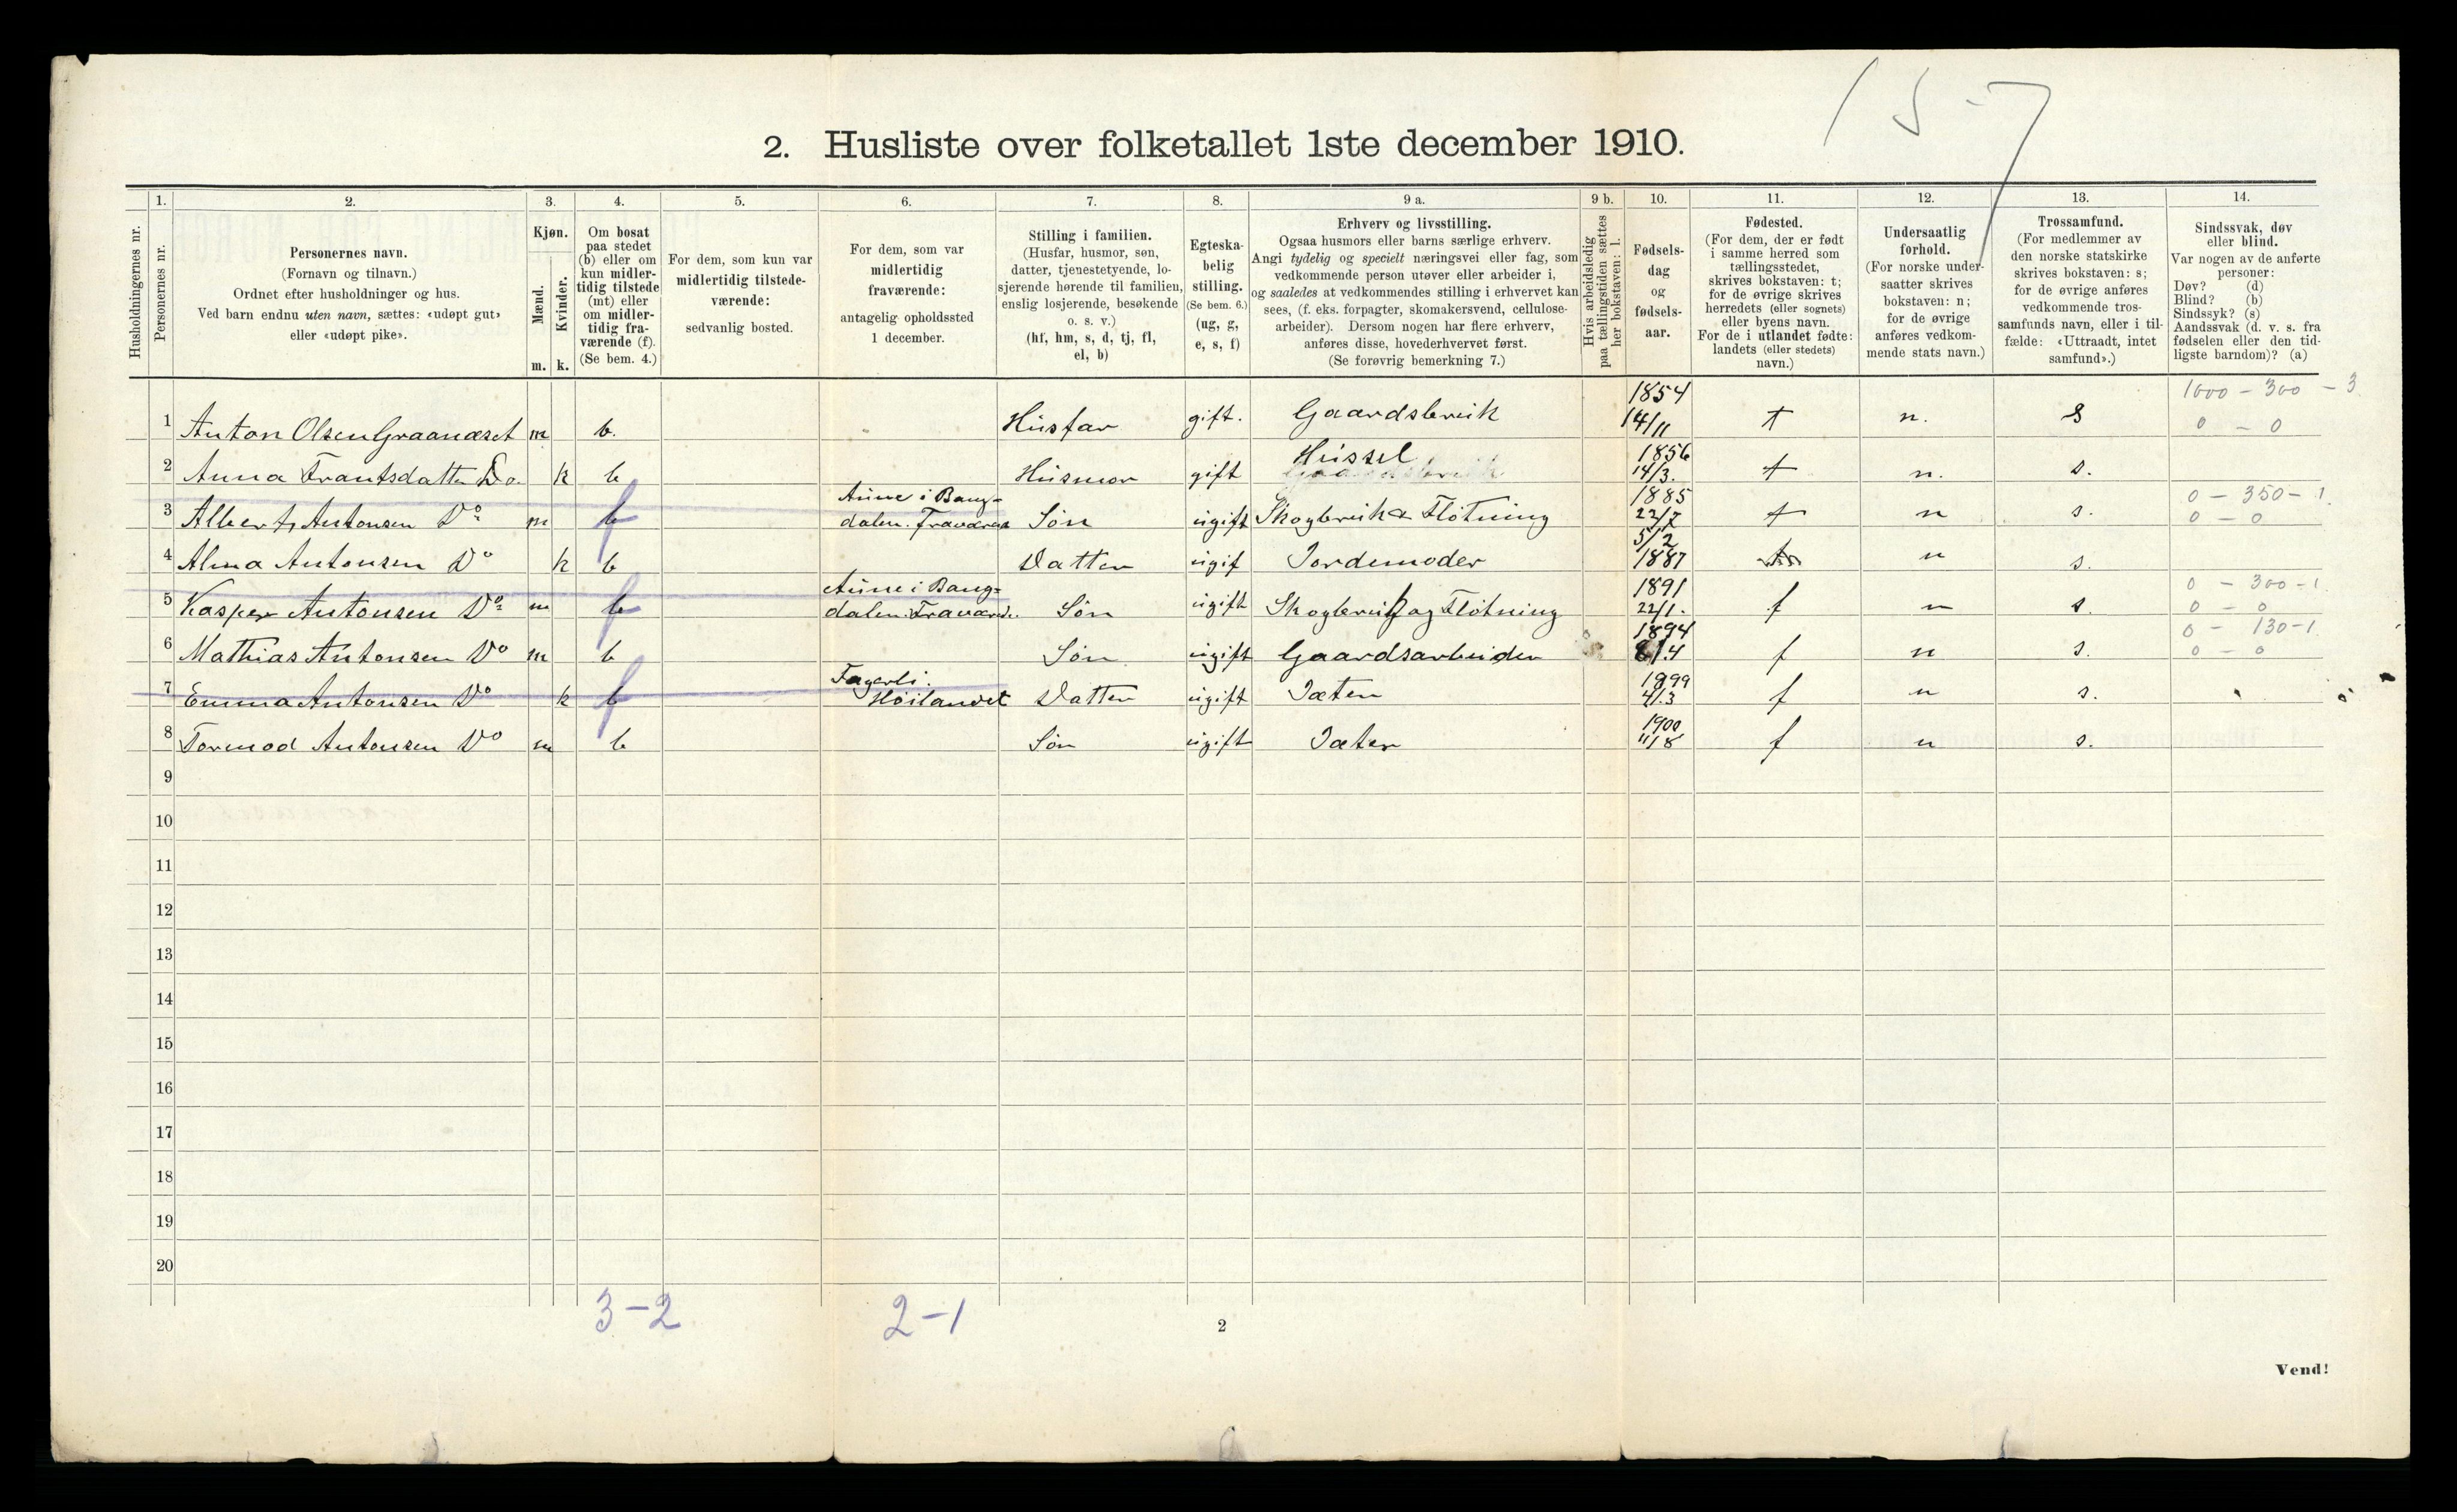 15-7
2. Husliste over folketallet 1ste december 1910.
Husholdningernes nr.
1. Personernes nr.
2. Personernes navn.
(Fornavn og tilnavn.)
Ordnet efter husholdninger og hus.
Ved barn endnu uten navn, sættes: «udøpt gut»
eller «udøpt pike».
3. Kjøn.
Mænd. m.
Kvinder. k.
4. Om bosat
paa stedet
(b) eller om
kun midler-
tidig tilstede
(mt) eller
om midler-
tidig fra-
værende (f).
(Se bem. 4.)
5. For dem, som kun var
midlertidig tilstede-
værende:
sedvanlig bosted.
6. For dem, som var
midlertidig
fraværende:
antagelig opholdssted
1 december.
7. Stilling i familien.
(Husfar, husmor, søn,
datter, tjenestetyende, lo-
sjerende hørende til familien,
enslig losjerende, besøkende
o. s. v.)
(hf, hm, s, d, tj, fl,
el, b)
8. Egteska-
belig
stilling.
(Se bem. 6.)
(ug, g,
e, s, f)
9 a. Erhverv og livsstilling.
Ogsaa husmors eller barns særlige erhverv.
Angi tydelig og specielt næringsvei eller fag, som
vedkommende person utøver eller arbeider i,
og saaledes at vedkommendes stilling i erhvervet kan
sees, (f. eks. forpagter, skomakersvend, cellulose-
arbeider). Dersom nogen har flere erhverv,
anføres disse, hovederhvervet først.
(Se forøvrig bemerkning 7.)
9 b. Hvis arbeidsledig
paa tællingstiden sættes
her bokstaven: l.
10. Fødsels-
dag
og
fødsels-
aar.
11. Fødested.
(For dem, der er født
i samme herred som
tællingsstedet,
skrives bokstaven: t;
for de øvrige skrives
herredets (eller sognets)
eller byens navn.
For de i utlandet fødte:
landets (eller stedets)
navn.)
12. Undersaatlig
forhold.
(For norske under-
saatter skrives
bokstaven: n;
for de øvrige
anføres vedkom-
mende stats navn.)
13. Trossamfund.
(For medlemmer av
den norske statskirke
skrives bokstaven: s;
for de øvrige anføres
vedkommende tros-
samfunds navn, eller i til-
fælde: «Uttraadt, intet
samfund».)
14. Sindssvak, døv
eller blind.
Var nogen av de anførte
personer:
Døv? (d)
Blind? (b)
Sindssyk? (s)
Aandssvak (d. v. s. fra
fødselen eller den tid-
ligste barndom)? (a)
1 Anton Olsen Graanæset m b. Husfar gift. Gaardsbruk 1854 14/11 t n. s 1000 - 300 - 3 0 - 0
2 Anna Frantsdatter Do. k b Husmor gift Hussel 1856 14/3. t n. s.
3 Albert Antonsen Do m f Aune i Bang- dalen. Fraværes Søn ugift Skogbruk & Fløtning 1885 22/7 t n s. 0 - 350 - 1. 0 - 0
4 Alma Antonsen Do k b Datter ugif Jordemoder 5/2 1887 n s.
5 Kasper Antonsen Do m f Aune i Bang= dalen. Søn ugift Skogbruk og Fløtning 1891 22/1. f n s. 0 - 300 - 1 0 - 0
6 Mathias Antonsen Do m b Søn ugift Gaardsarbeider 1894 /4 f n s. 0 - 130 - 1 0 - 0
7 Emma Antonsen Do k f Fagerli. Høilandet Datter ugift Jæter 1899 4/3 f n s.
8 Tormod Antonsen Do m b Søn ugift Jæter 1900 11/8 f n s.
9
10
11
12
13
14
15
16
17
18
19
20
3-2 2-1
2
Vend!